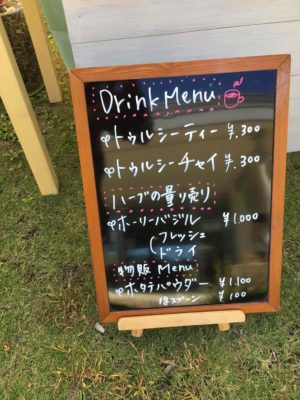 Drink Menu
トゥルシーティー ¥300
トゥルシーチャイ ¥300
ハーブの量り売り
ホーリーバジル ¥1,000
フレッシュ
ドライ
物販 Menu
ホタテパウダー ¥1,100
スプーン ¥100